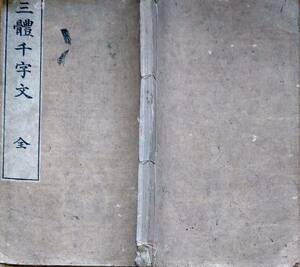 三體千字文 全